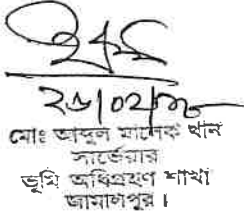 মোঃ আব্দুল মালেক খান
সার্ভেয়ার
ভূমি অধিগ্রহণ শাখা
জামালপুর।